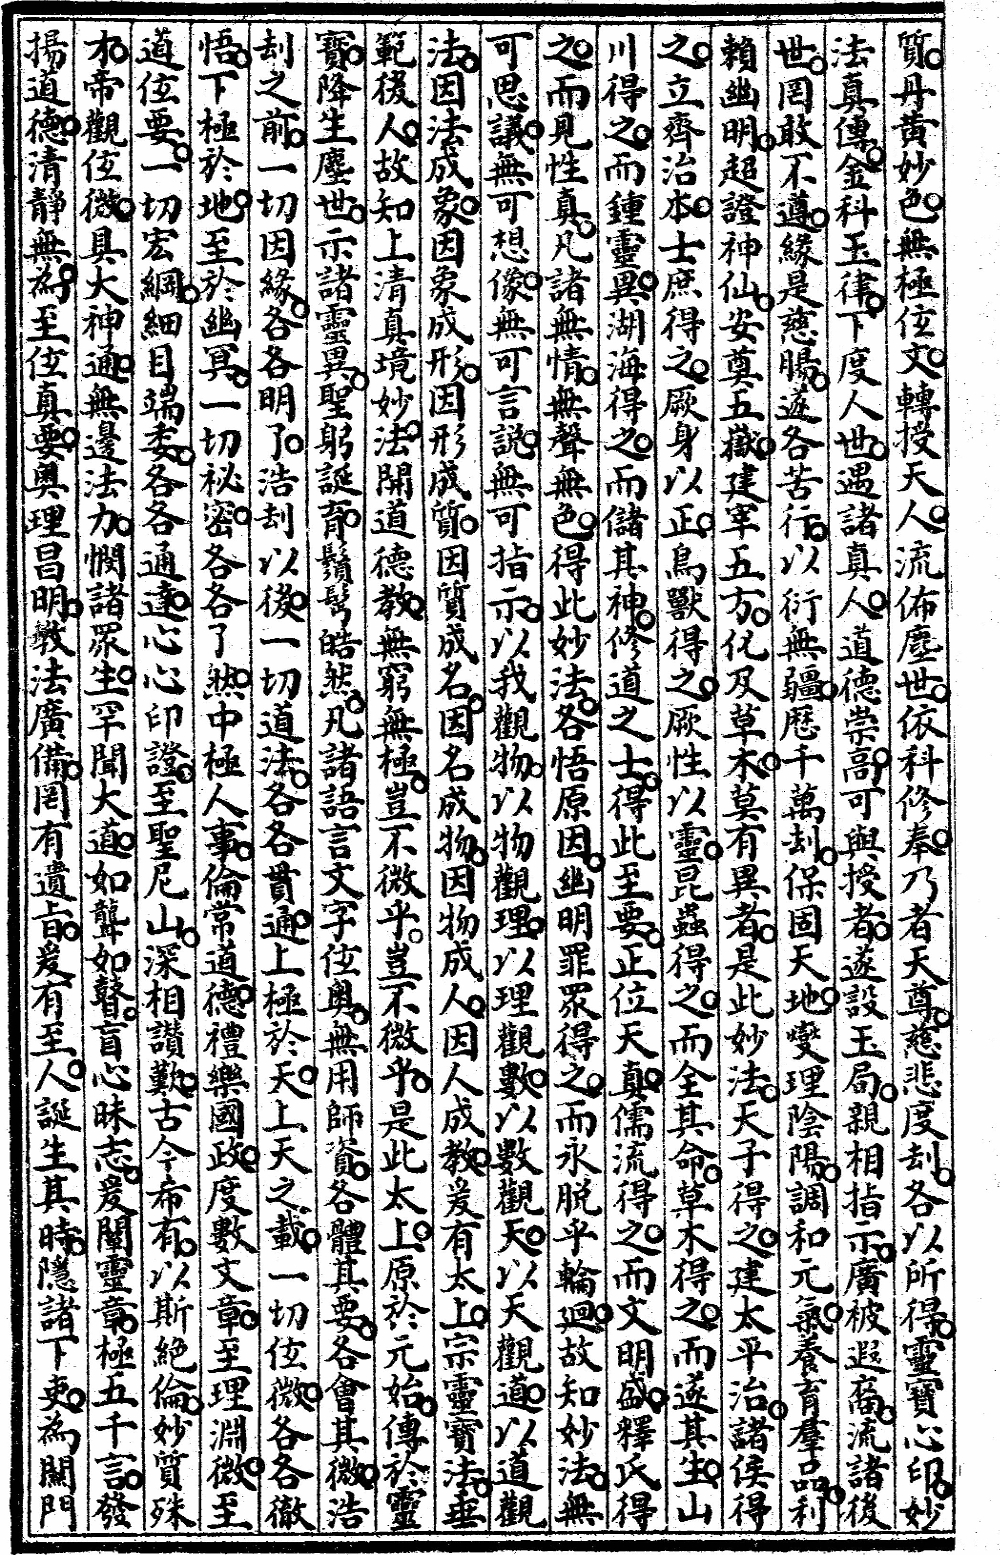 質丹黃妙色無極位文轉授天人流佈塵世依科修奉乃者天尊慈悲度刦各以所得靈寶心印妙
法真傳金科玉律下度人世遇諸真人道德崇高可與授者遂設玉局親相指示廣被遐裔流諸後
世罔敢不遵緣是慈腸遂各苦行以衍無疆歷千萬刦保固天地燮理陰陽調和元氣養育羣品利
賴幽明超證神仙安奠五嶽建宰五方化及草木莫有異者是此妙法天子得之建太平治諸侯得
之立齊治本士庶得之厥身以正鳥獸得之厥性以靈昆蟲得之而全其命草木得之而遂其生山
川得之而鍾靈異湖海得之而儲其神修道之士得此至要正位天真儒流得之而文明盛釋氏得
之而見性真凡諸無情無聲無色得此妙法各悟原因幽明罪眾得之而永脫乎輪迴故知妙法無
可思議無可想像無可言說無可指示以我觀物以物觀理以理觀數以數觀天以天觀道以道觀
法因法成象因象成形因形成質因質成名因名成物因物成人因人成教爰有太上宗靈寶法垂
範後人故知上清真境妙法開道德教無窮無極豈不微乎豈不微乎是此太上原於元始傳於靈
寶降生塵世示諸靈異聖躬誕育鬚髩皓然凡諸語言文字位奧無用師資各體其要各會其微浩
刦之前一切因緣各各明了浩刦以後一切道法各各貫通上極於天上天之載一切位微各各徹
悟下極於地至於幽冥一切祕密各各了然中極人事倫常道德禮樂國政度數文章至理淵微至
道位要一切宏綱細目端委各各通達心心印證至聖尼山深相讚歎古今希有以斯絕倫妙質殊
才帝觀位微具大神通無邊法力憫諸眾生罕聞大道如聾如瞽盲心昧志爰闡靈章極五千言發
揚道德清靜無為至位真要奧理昌明教法廣備罔有遺旨爰有至人誕生其時隱諸下吏為關門